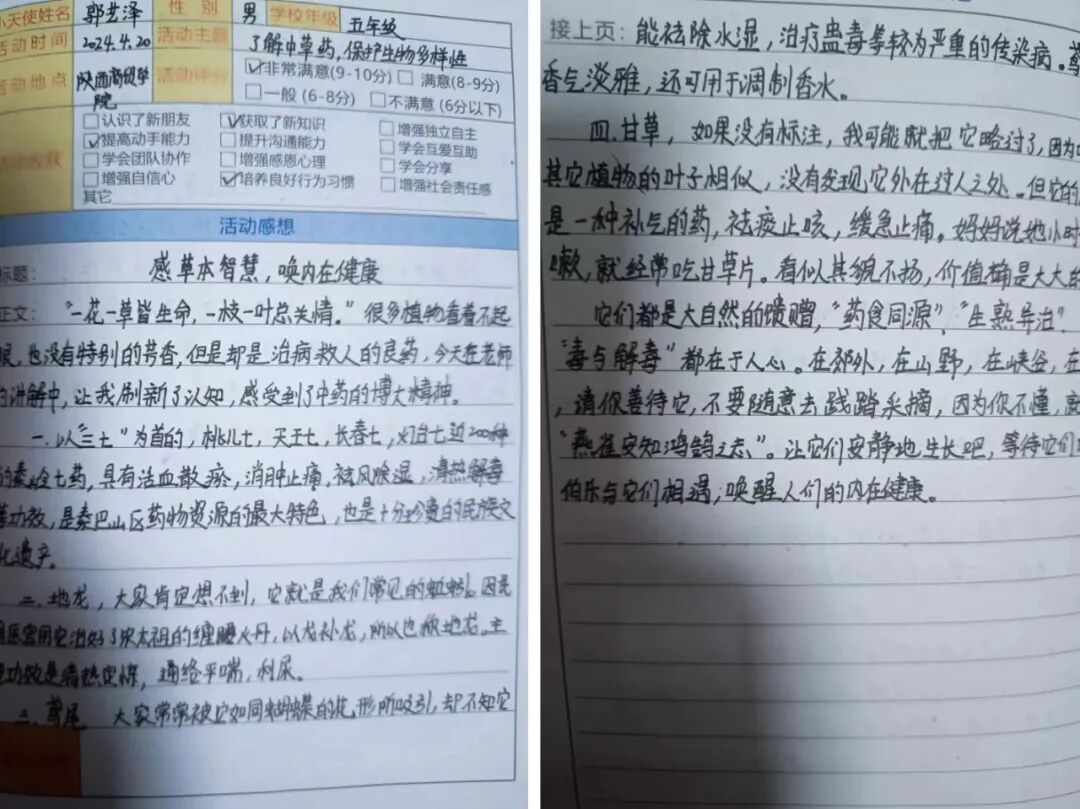 小天使姓名 郭艺泽 性别 男 学校年级 五年级
活动时间 2024.4.20 活动主题 了解中草药,保护生物多样性
活动地点 陕西商贸学院 活动评分 ☑非常满意(9-10分) □满意(8-9分)
□一般(6-8分) □不满意(6分以下)
□认识了新朋友 ☑获取了新知识 □增强独立自主
☑提高动手能力 □提升沟通能力 □学会互爱互助
□学会团队协作 □增强感恩心理 □学会分享
□增强自信心 ☑培养良好行为习惯 □增强社会责任感
其它
活动感想
标题: 感草本智慧,唤内在健康
正文: “一花一草皆生命,一枝一叶总关情。”很多植物看着不起
眼,也没有特别的芳香,但是却是治病救人的良药,今天在老师
的讲解中,让我刷新了认知,感受到了中药的博大精神。
一.以“三七”为首的,桃儿七,天王七,长春七,灯台七近200种
的秦岭七药,具有活血散瘀,消肿止痛,祛风除湿,清热解毒
等功效,是秦巴山区药物资源的最大特色,也是十分珍贵的民族文
化遗产。
二.地龙,大家肯定想不到,它就是我们常见的蚯蚓。因民
医曾用它治好了宋太祖的缠腰火丹,以龙补龙,所以也称地龙。主
功效是清热定惊,通络平喘,利尿。
三.鸢尾,大家常常被它如同蝴蝶的花形所吸引,却不知它
接上页: 能祛除水湿,治疗蛊毒等较为严重的传染病。鸢
香气淡雅,还可用于调制香水。
四.甘草,如果没有标注,我可能就把它略过了,因为
其它植物的叶子相似,没有发现它外在过人之处。但它的
是一种补气的药,祛痰止咳,缓急止痛。妈妈说她小时
嗽,就经常吃甘草片。看似其貌不扬,价值确是大大的
它们都是大自然的馈赠,“药食同源”,“生熟异治”,
“毒与解毒”都在于人心。在郊外,在山野,在峡谷,在
,请你善待它,不要随意去践踏采摘,因为你不懂,就
“燕雀安知鸿鹄之志”。让它们安静地生长吧,等待它们
伯乐与它们相遇,唤醒人们的内在健康。